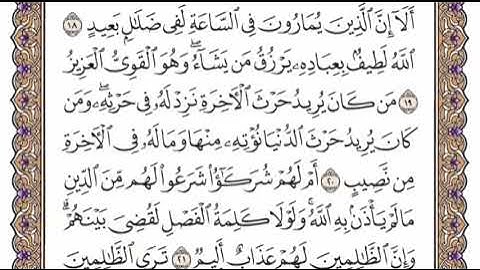 أَلَآ إِنَّ ٱلَّذِينَ يُمَارُونَ فِى ٱلسَّاعَةِ لَفِى ضَلَٰلٍۭ بَعِيدٍ ١٨
ٱللَّهُ لَطِيفٌۢ بِعِبَادِهِۦ يَرْزُقُ مَن يَشَآءُۖ وَهُوَ ٱلْقَوِىُّ ٱلْعَزِيزُ
١٩ مَن كَانَ يُرِيدُ حَرْثَ ٱلْءَاخِرَةِ نَزِدْ لَهُۥ فِى حَرْثِهِۦۖ وَمَن
كَانَ يُرِيدُ حَرْثَ ٱلدُّنْيَا نُؤْتِهِۦ مِنْهَا وَمَا لَهُۥ فِى ٱلْءَاخِرَةِ
مِن نَّصِيبٍ ٢٠ أَمْ لَهُمْ شُرَكَٰٓؤُا۟ شَرَعُوا۟ لَهُم مِّنَ ٱلدِّينِ
مَا لَمْ يَأْذَنۢ بِهِ ٱللَّهُۚ وَلَوْلَا كَلِمَةُ ٱلْفَصْلِ لَقُضِىَ بَيْنَهُمْۗ
وَإِنَّ ٱلظَّٰلِمِينَ لَهُمْ عَذَابٌ أَلِيمٌ ٢١ تَرَى ٱلظَّٰلِمِينَ